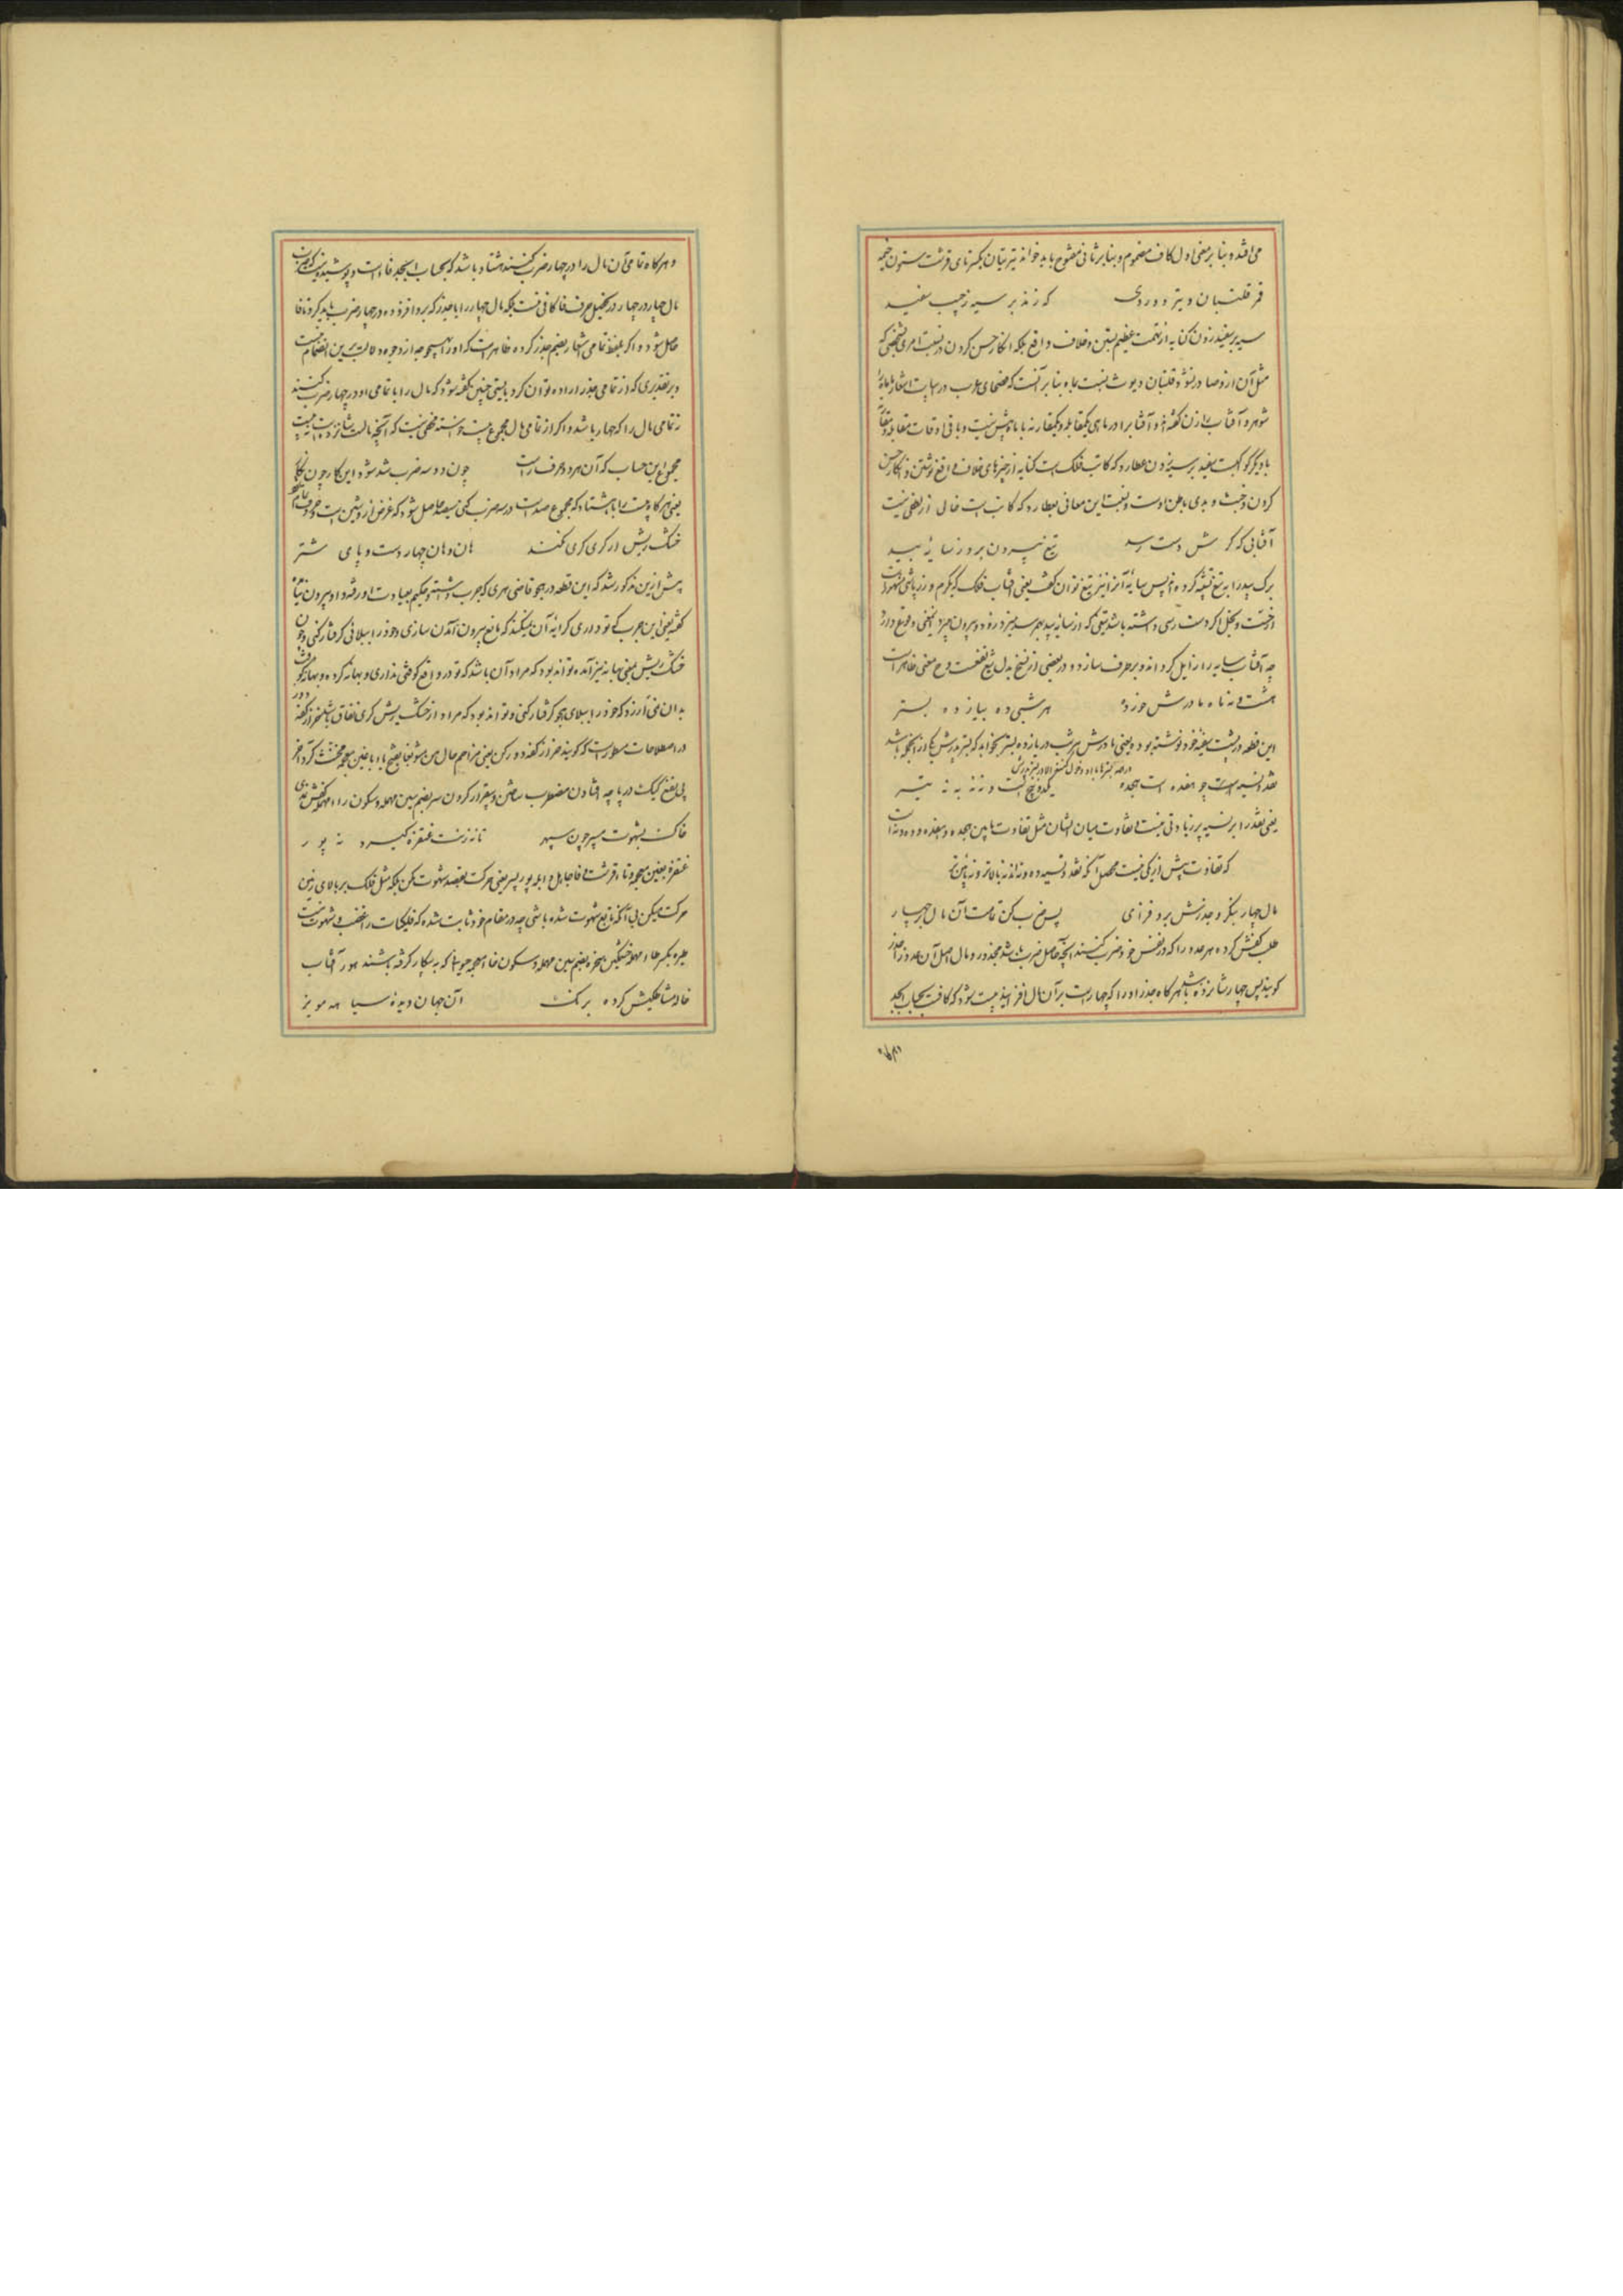 می افتد و بنابر معنی اول کاف مضموم و بنابر ثانی مفتوح باید خواند تیر بتان بکسر تای قرشت ستون خیمه
قر قلتبان و تیر و وردی که زند بر سیه ز چپ سفید
سیه بر سفید زدن کنایه از تهمت عظیم بستن و خلاف واقع بلکه انکار حس کردن و نسبت امری بشخصی که
مثل آن ازو صادر نشود و قلتبان دیوث نسبت بماه بنابر آنست که فصحای عرب در ابیات اشعار ماه را
شوهر و آفتاب را زن گفته اند و آفتاب را در ماهی یکمقابله و یکمقارنه با ماه بیش نیست و باقی اوقات مقابله و مقارنه
با دیگر کواکبست سفید بر سیه زدن عطارد که کاتب فلک است کنایه از چیزهای خلاف واقع نوشتن و انکار حس
کردن و خبث و بدی باطن اوست و نسبت این معانی بعطارد که کاتب است خالی از لطفی نیست
آفتابی که گرش دست رسد تیغ بیرون برد ز سایه بید
برگ بید را به تیغ تشبیه کرده اند پس سایه آنرا نیز تیغ توان گفت یعنی آفتاب فلک که بکرم و زرپاشی شهرت دارد
از خست و بخل اگر دست رسی داشته باشد تیغی که از سایه بید بهم رسد میدزدد و بیرون میبرد اینمعنی وقوع دارد
چه آفتاب سایه را زایل گرداند و برطرف سازد و در بعضی از نسخ بدل تیغ نفعست و ح معنی ظاهر است
هشت و نه ماه مادرش خورد هر شبی ده بیازده بستر
این قطعه در پشت سفینه خود نوشته بود یعنی مادرش هر شب در یازده بستر بخوابد که بستر پدرش یکی از انجمله باشد
نقد و نسیه است چو هفده است هجده یکدو پنج بیست و نه نه به نه بیتر
یعنی نقد را بر نسیه پر زیادتی نیست و تفاوت میان ایشان مثل تفاوت مابین هجده و هفده و ده و نه است
که تفاوت بیش از یکی نیست محصل آنکه نقد و نسیه ده و نه اند نه بالاتر و نه پایین تر
مال چهار بنگر و جذرش برو فزای پس ضرب کن تمامت آن مال چهار
طلب کفش کرده هر عدد را که در نفس خود ضرب کنند آنچه حاصل ضرب باشد مجذور و مال اصل آن عدد را جذر
گویند پس چهار شانزده باشد هر گاه جذر او را که چهار است بر آن مال افزایند بیست شود که کاف بحساب ابجد
و هر گاه تمامی آن مال را در چهار ضرب کنند هشتاد باشد که بحساب ابجد فا است و پوشیده نیست که ضرب
مال چهار در چهار در تحصیل حرف فا کافی نیست بلکه مال چهار را با جذر که برو افزوده در چهار ضرب باید کرد تا فا
حاصل شود و اگر بلفظ تمامی اشعار بضم جذر کرده ظاهر است که او را بهیچوجه از وجوه دلالت برین انضمام نیست
و بر تقدیری که از تمامی جذر اراده توان کرد بایستی چنین گفته شود که مال را با تمامی او در چهار ضرب کنند
نه تمامی مال را که چهار باشد و اگر از تمامی مال مجموع بیست خواسته مخفی نیست که آنچه مالست شانزده است نه بیست
مجموع این حساب که آن هر دو حرف راست چون در سه ضرب شد شود این کار چون نگار
یعنی هر گاه بیست را با هشتاد که مجموع صد است در سه ضرب کنی سیصد حاصل شود که غرض از و شین است
خشک ریش ار گری گری نکند هان و هان چهار دست و پای شتر
پیش ازین مذکور شد که این قطعه در هجو قاضی هری که جرب داشته و حکیم بعیادت او رفته و او بیرون نیامده
گفته یعنی این جرب که تو داری کرای آن میکند که مانع بیرون آمدن سازی و خود را ببلائی گرفتار کنی و چون
خشک ریش بمعنی بهانه نیز آمده تواند بود که مراد آن باشد که تو در واقع کوفتی نداری و بهانه کرده و بهانه کوفت
بدان نمی ارزد که خود را ببلای هجو گرفتار کنی و تواند بود که مراد از خشک ریش گری نفاق باشد
در اصطلاحات مسطور است که گویند خر از کفه دور کن یعنی مزاحم حال من مشو
کیک در پاچه افتادن مضطرب ساختن و بیقرار کردن سر بضم سین مهمله و سکون راء مهمله کفش
خاک بشهوت مسپر چون سپهر تا نه زنت غنفره گیرد نه پور
غنفره بغین معجمه و تاء قرشت و فا جاهل و ابله پور پسر یعنی حرکت بقصد شهوت مکن بلکه مثل فلک بر بالای زمین
حرکت میکن بی آنکه تابع شهوت شده باشی چه در مقام خود ثابت شده که فلکیات را غضب و شهوت نیست
طیره بکسر طاء مهمله خشمگین سخره بضم سین مهمله و سکون خاء معجمه حیوانی که به بیکار گرفته باشند هور آفتاب
خاله مشاطگیش کرده برنگ آن جهان دیده سیاه مویز